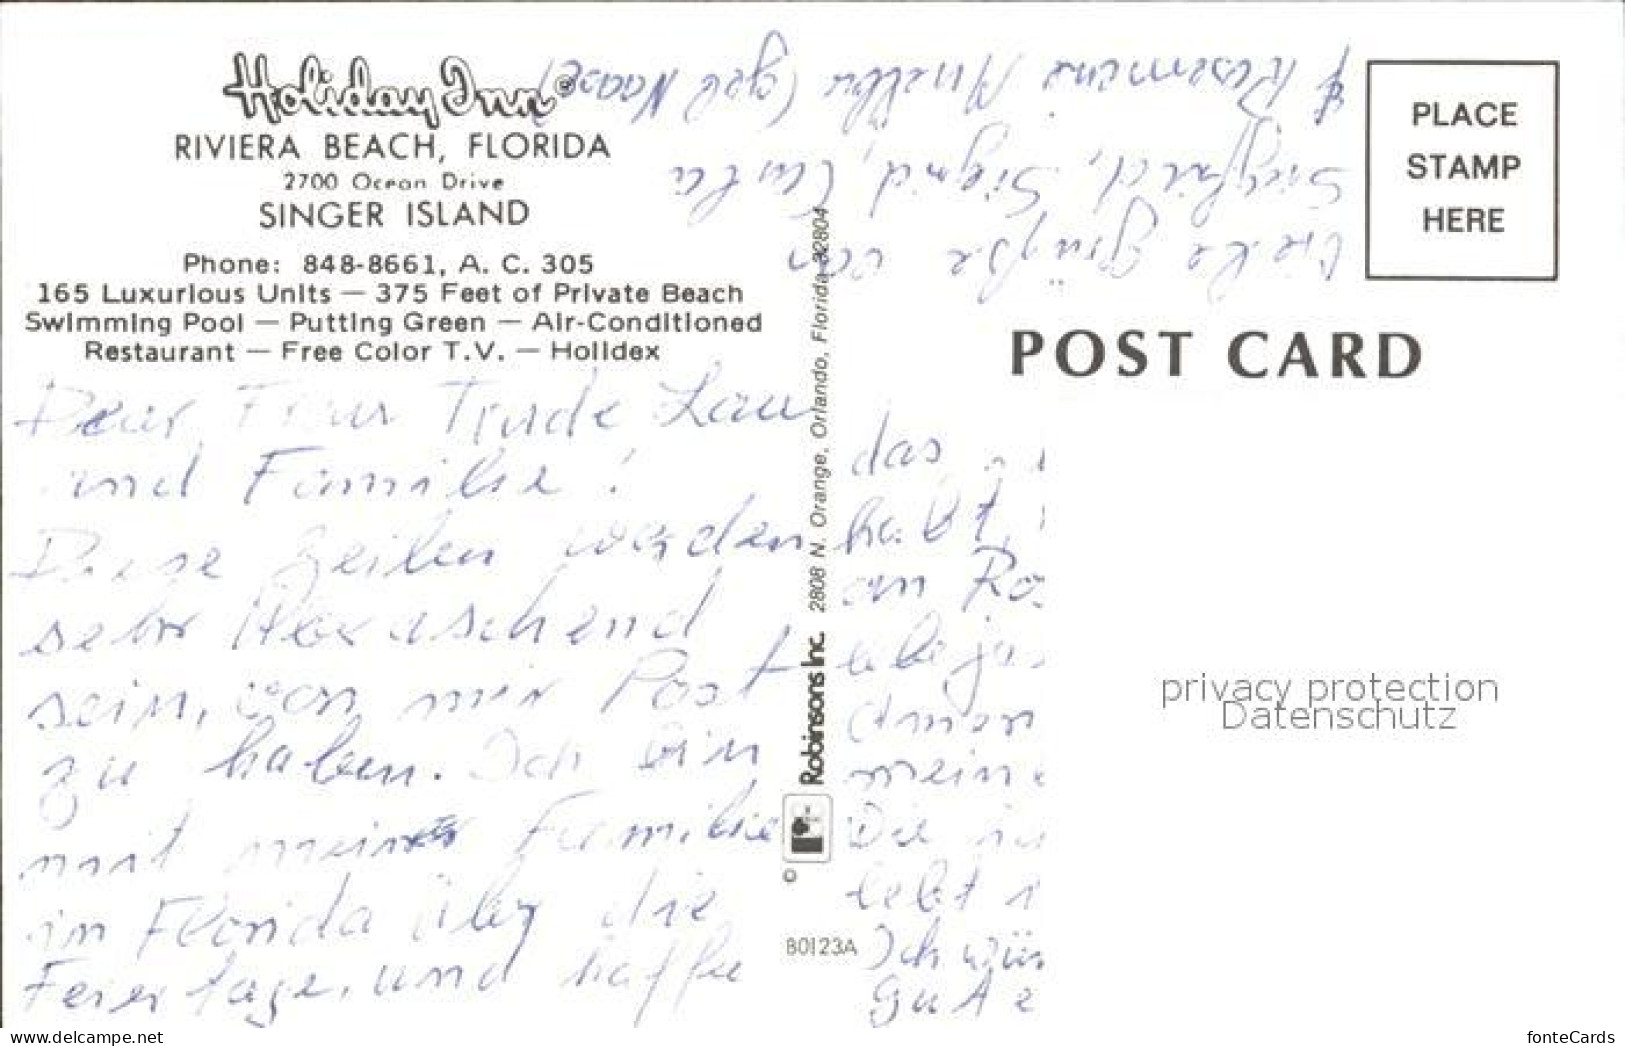 Holiday Inn®
RIVIERA BEACH, FLORIDA
2700 Ocean Drive
SINGER ISLAND
Phone: 848-8661, A. C. 305
165 Luxurious Units — 375 Feet of Private Beach
Swimming Pool — Putting Green — Air-Conditioned
Restaurant — Free Color T.V. — Holidex
Dear Frau Trude Lau
und Familie!
Diese Zeilen werden
sehr überraschend
sein, von mir Post
zu haben. Ich bin
mit meiner Familie
in Florida über die
Feiertage, und hoffe
das
habt,
am Ro
lebe ja
Amer
meine
Die
lebt
Ich wün
Gute
Liebe Grüße von
Siegfried, Sigrid, Carla
& Rosemarie Mueller (geb Naase)
Robinsons Inc. 2808 N. Orange, Orlando, Florida 32804
80123A
PLACE
STAMP
HERE
POST CARD
privacy protection
Datenschutz
www.delcampe.net
fonteCards